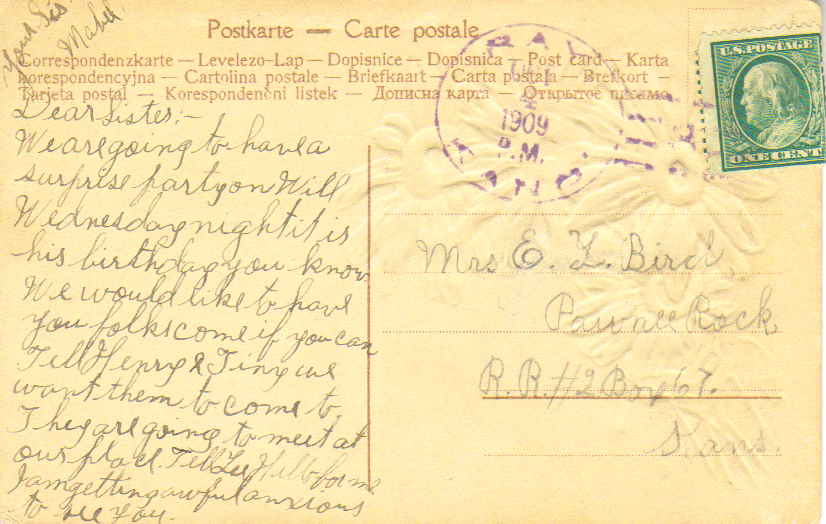 Your Sis
Mabel
Postkarte — Carte postale
Correspondenzkarte — Levelezo-Lap — Dopisnice — Dopisnica — Post card — Karta
korespondencyjna — Cartolina postale — Briefkaart — Carta postala — Brefkort —
Tarjeta postal — Korespondencni listek — Дописна карта — Открытое письмо
1909
P.M.
U.S. POSTAGE
ONE CENT
Dear Sister:-
We are going to have a
surprise party on Will
Wednesday night it is
his birthday you know.
We would like to have
you folks come if you can
Tell Henry & Tiny we
want them to come to.
They are going to meet at
our place. Tell
I am getting awful anxious
to see you.
Mrs E. L. Bird
Pawnee Rock
R.R.#2 Box 67.
Kans.